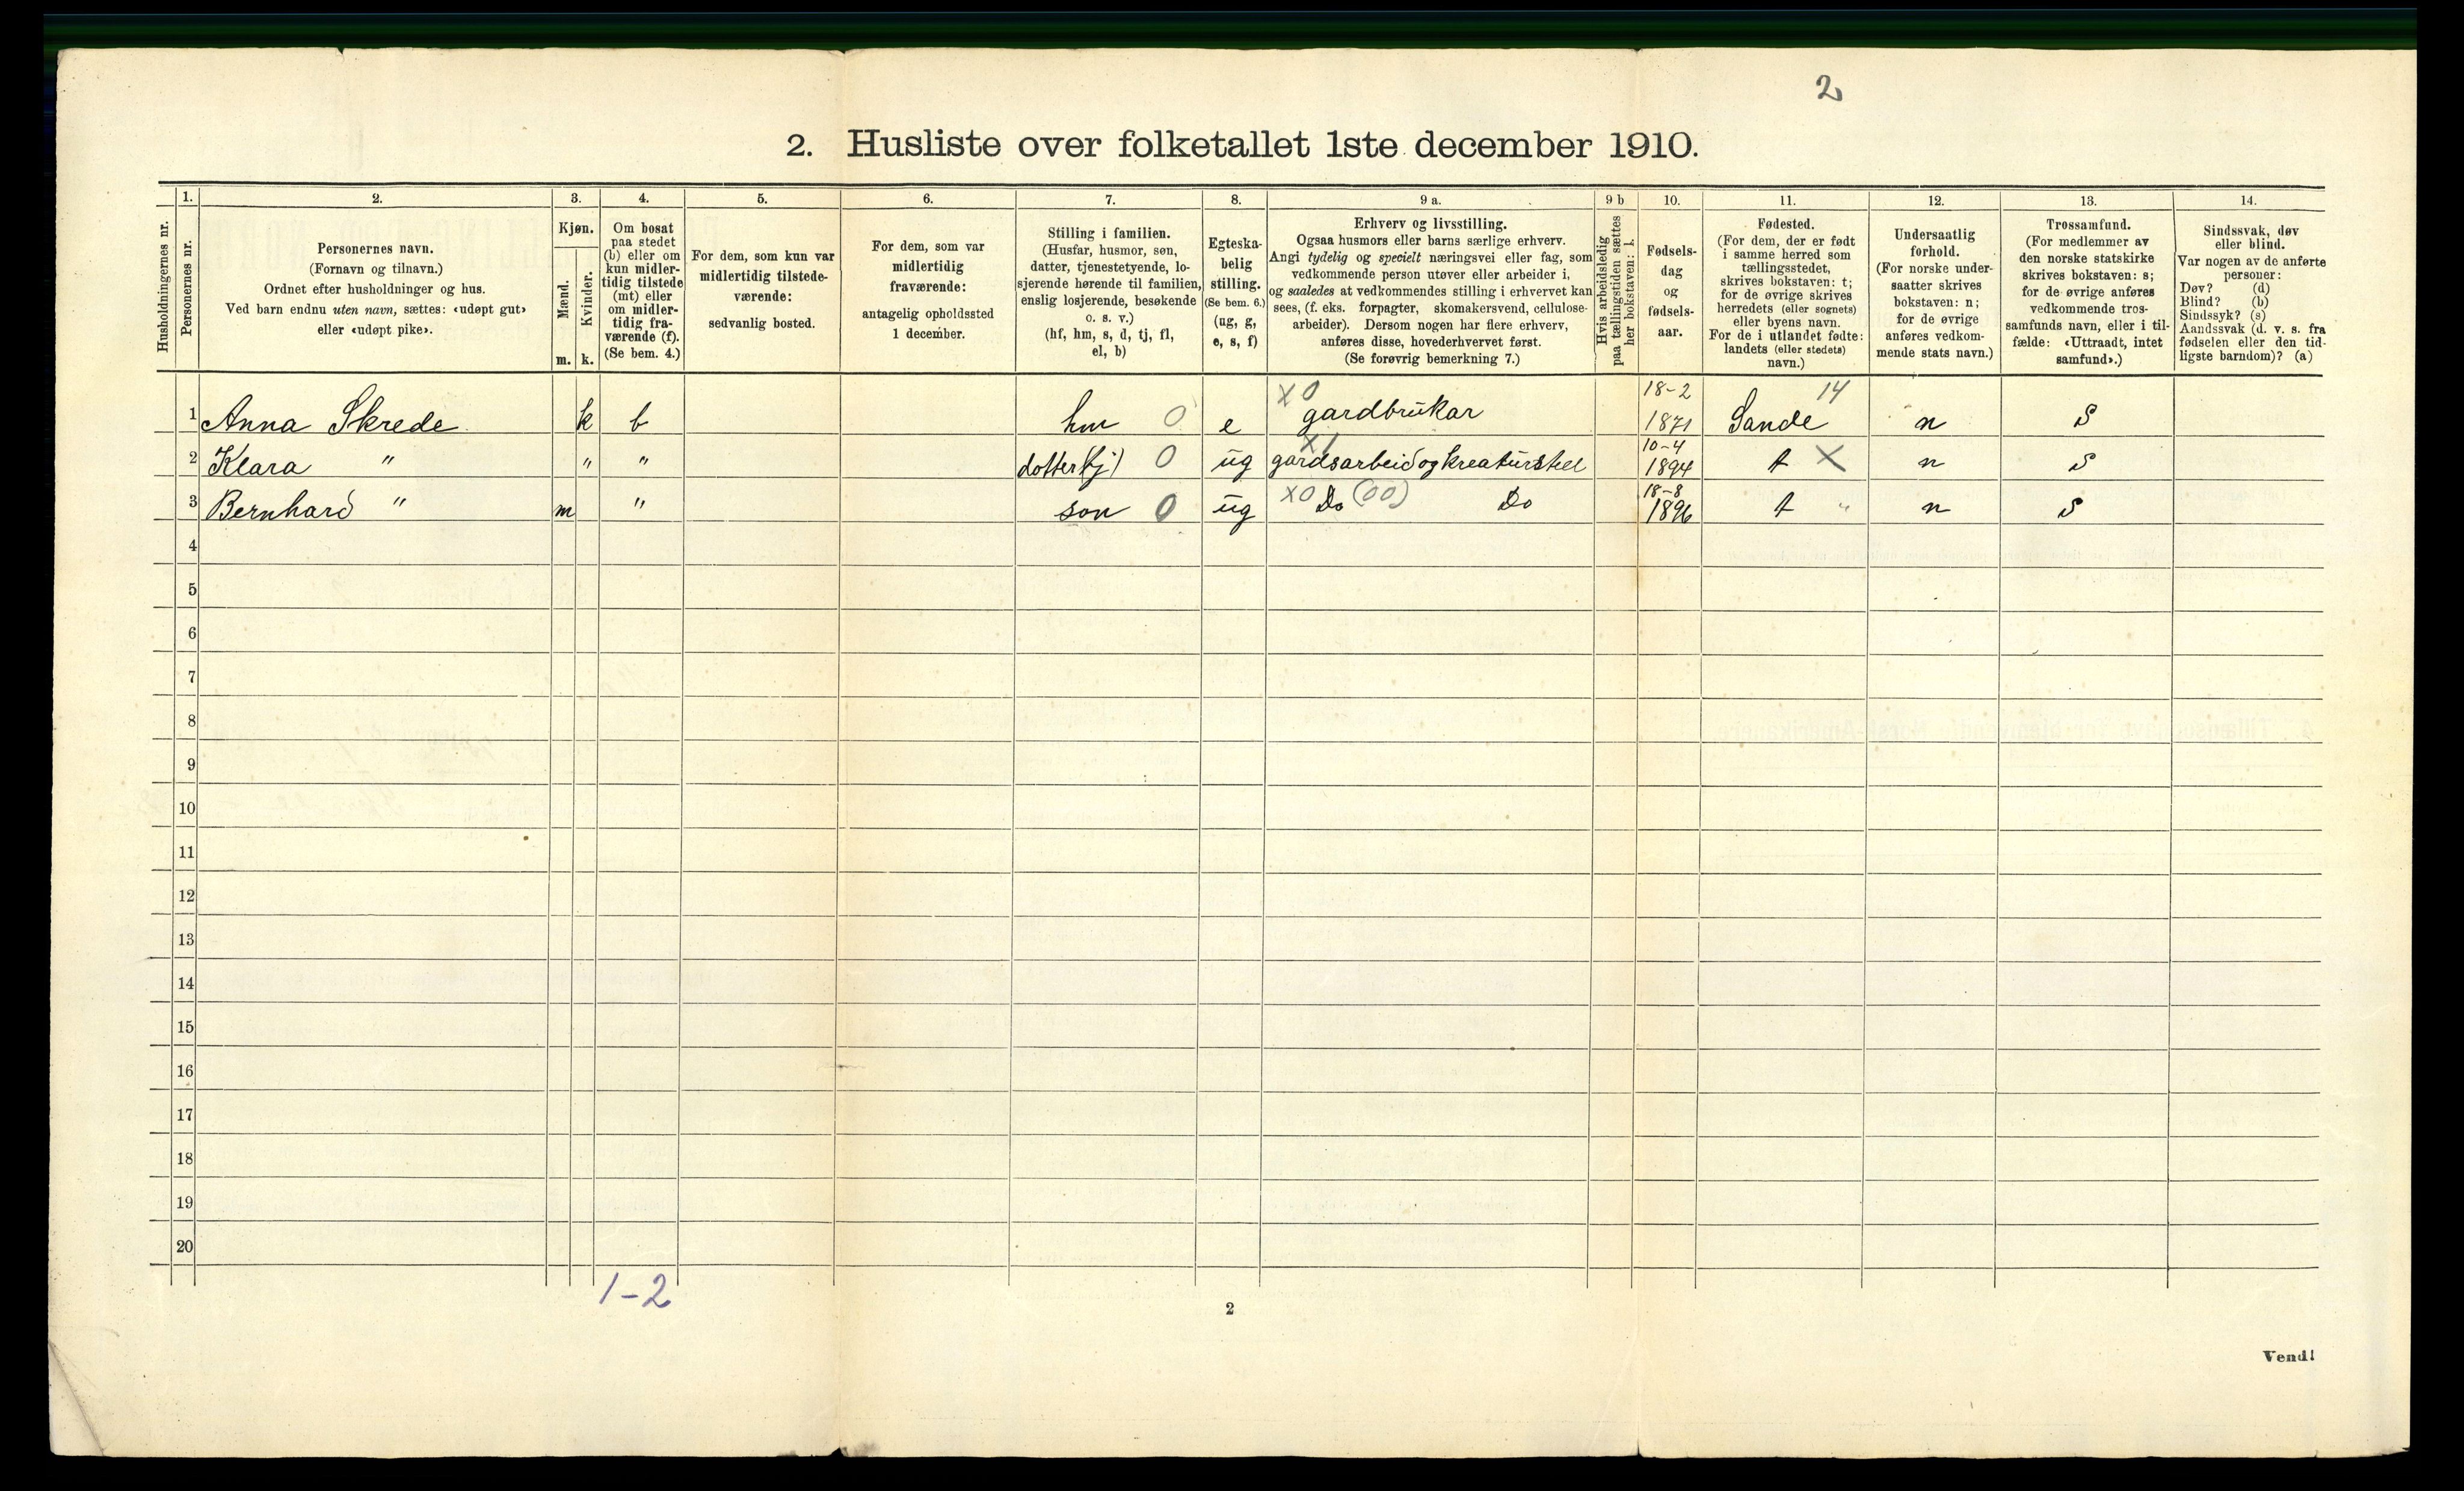 2
2. Husliste over folketallet 1ste december 1910.
1. 2. 3. 4. 5. 6. 7. 8. 9 a. 9 b 10. 11. 12. 13. 14.
Husholdningernes nr.
Personernes nr.
Personernes navn.
(Fornavn og tilnavn.)
Ordnet efter husholdninger og hus.
Ved barn endnu uten navn, sættes: «udøpt gut»
eller «udøpt pike».
Kjøn.
Mænd.
Kvinder.
m. k.
Om bosat
paa stedet
(b) eller om
kun midler-
tidig tilstede
(mt) eller
om midler-
tidig fra-
værende (f).
(Se bem. 4.)
For dem, som kun var
midlertidig tilstede-
værende:
sedvanlig bosted.
For dem, som var
midlertidig
fraværende:
antagelig opholdssted
1 december.
Stilling i familien.
(Husfar, husmor, søn,
datter, tjenestetyende, lo-
sjerende hørende til familien,
enslig losjerende, besøkende
o. s. v.)
(hf, hm, s, d, tj, fl,
el, b)
Egteska-
belig
stilling.
(Se bem. 6.)
(ug, g,
e, s, f)
Erhverv og livsstilling.
Ogsaa husmors eller barns særlige erhverv.
Angi tydelig og specielt næringsvei eller fag, som
vedkommende person utøver eller arbeider i,
og saaledes at vedkommendes stilling i erhvervet kan
sees, (f. eks. forpagter, skomakersvend, cellulose-
arbeider). Dersom nogen har flere erhverv,
anføres disse, hovederhvervet først.
(Se forøvrig bemerkning 7.)
Hvis arbeidsledig
paa tællingstiden sættes
her bokstaven: l.
Fødsels-
dag
og
fødsels-
aar.
Fødested.
(For dem, der er født
i samme herred som
tællingsstedet,
skrives bokstaven: t;
for de øvrige skrives
herredets (eller sognets)
eller byens navn.
For de i utlandet fødte:
landets (eller stedets)
navn.)
Undersaatlig
forhold.
(For norske under-
saatter skrives
bokstaven: n;
for de øvrige
anføres vedkom-
mende stats navn.)
Trossamfund.
(For medlemmer av
den norske statskirke
skrives bokstaven: s;
for de øvrige anføres
vedkommende tros-
samfunds navn, eller i til-
fælde: «Uttraadt, intet
samfund».)
Sindssvak, døv
eller blind.
Var nogen av de anførte
personer:
Døv? (d)
Blind? (b)
Sindssyk? (s)
Aandssvak (d. v. s. fra
fødselen eller den tid-
ligste barndom)? (a)
X0 18-2 14
1 Anna Skrede k b hm 0 e gardbrukar 1871 Sande n S
X1 10-4
2 Klara " " " dotter (tj) 0 ug gardsarbeid og kreaturstell 1894 t X n S
X0 (00) 18-8
3 Bernhard " m " son 0 ug Do Do 1896 t " n S
4
5
6
7
8
9
10
11
12
13
14
15
16
17
18
19
20
1-2
2
Vend!